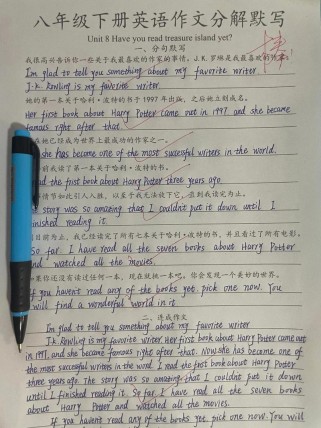 八年级下册英语作文分解默写
Unit 8 Have you read treasure island yet?
一、分句默写
我很高兴告诉你一些关于我最喜欢的作家的事情。J.K.罗琳是我最喜欢的作家。
I'm glad to tell you something about my favorite writer.
J.K. Rowling is my favorite writer.
她的第一本关于哈利·波特的书于1997年出版，之后她立刻成名。
Her first book about Harry Potter came out in 1997 and she became
famous right after that.
在她已经成为世界上最成功的作家之一。
she has become one of the most successful writers in the world.
前我读了第一本关于哈利·波特的书。
read the first book about Harry Potter three years ago.
情节如此引人入胜，以至于我无法放下它，直到我读完为止。
story was so amazing that I couldn't put it down until I
finished reading it.
目前为止，我已经读完了所有七本关于哈利·波特的书，并且看过了所有电影。
So far, I have read all the seven books about Harry Potter
and watched all the movies.
如果你还没有读过任何一本，现在就挑一本吧。你会发现一个美妙的世界。
If you haven't read any of the books yet, pick one now. You
will find a wonderful world in it.
二、连成作文
I'm glad to tell you something about my favorite writer.
J.k. Rowling is my favorite writer. Her first book about Harry Potter came out
in 1997, and she became famous right after that. Now, she has become one of
the most successful writers in the word. I read the first book about Harry Potter
three years ago. The story was so amazing that I couldn't put it down
until I finished reading it. So far, I have read all the seven books
about Harry Potter and watched all the movies.
If you haven't read any of the books yet, pick one now. You will